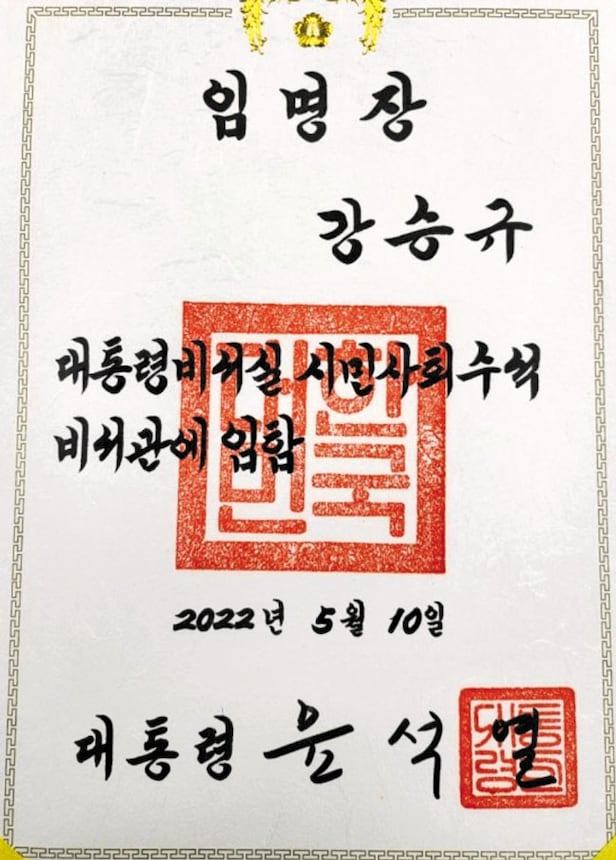 임명장
강승규
대통령비서실 시민사회수석
비서관에 임함
대한민국
2022년 5월 10일
대통령 윤석열